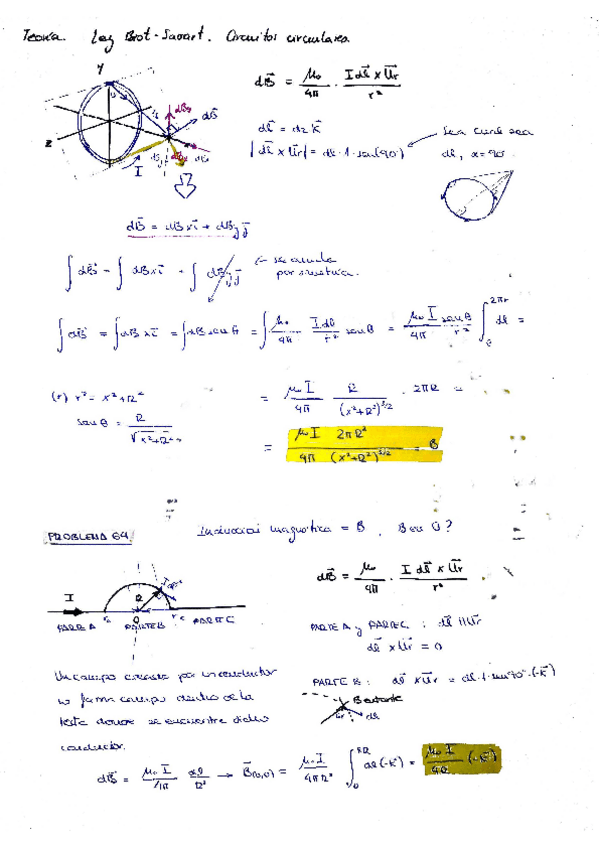 Teoría. Ley Biot-Savart. Circuitos circulares
y
z
I
r
dB⃗
dB⃗ = μ₀/4π · I dl⃗ × Ur⃗ / r²
dl⃗ = dz k⃗
|dl⃗ × Ur⃗| = dl · 1 · sen(90°)
Sea cual sea
dl, α = 90°
dB⃗ = dBx i⃗ + dBy j⃗
∫ dB⃗ = ∫ dBx i⃗ + ∫ dBy j⃗
se anula
por simetría.
∫ dB⃗ = ∫ dBx i⃗ = ∫ dB senθ = ∫ μ₀/4π I dl/r² senθ = μ₀ I senθ / 4π r² ∫₀^2πr dl =
(*) r² = x² + R²
senθ = R / √(x² + R²)
= μ₀ I/4π · R/(x² + R²)^3/2 · 2πR =
= μ₀ I/4π · 2πR²/(x² + R²)^3/2 = B
PROBLEMA 64
Inducción magnética = B, B en O?
dB⃗ = μ₀/4π · I dl⃗ × Ur⃗ / r²
I
R
O
PARTE A PARTE B PARTE C
PARTE A y PARTE C : dl⃗ || Ur⃗
dl⃗ × Ur⃗ = 0
Un campo creado por un conductor
no forma campo dentro de la
donde se encuentre dicho
conductor.
PARTE B: dl⃗ × Ur⃗ = dl · 1 · sen 90° · (-k⃗)
B entrante
Ur dl
dB⃗ = μ₀ I/4π dl/R² → B⃗(0,0) = μ₀ I/4πR² ∫₀^πR dl(-k⃗) = μ₀ I/4R (-k⃗)